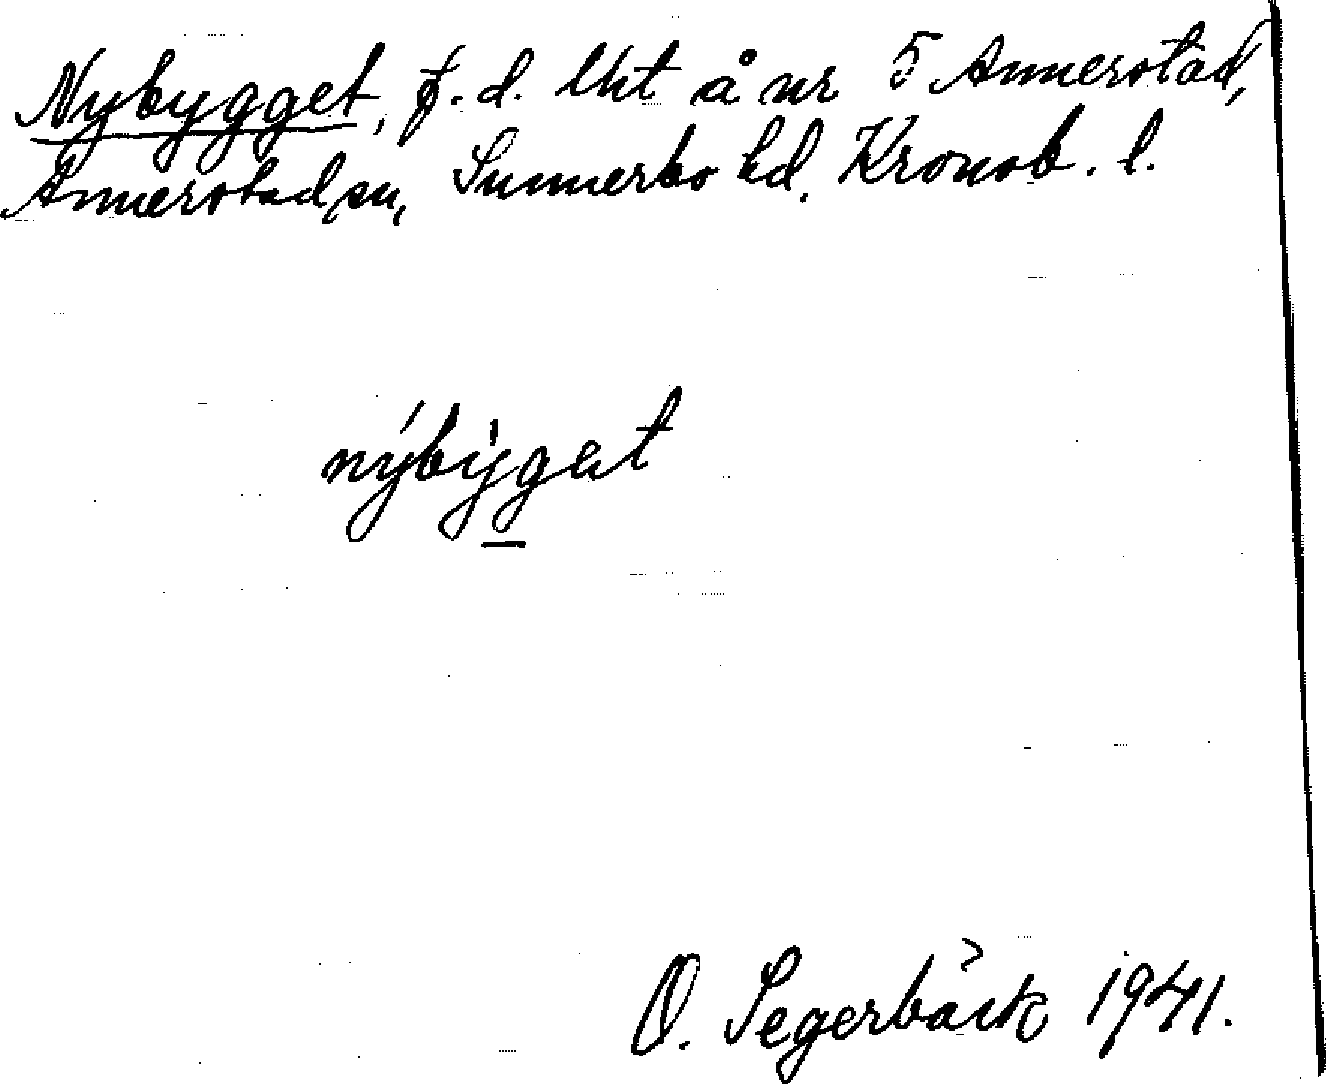 Nybygget, f. d. lht å nr 5 Annerstad,
Annerstad sn, Sunnerbo hd. Kronob. l.
nýbỳget
O. Segerbäck 1941.